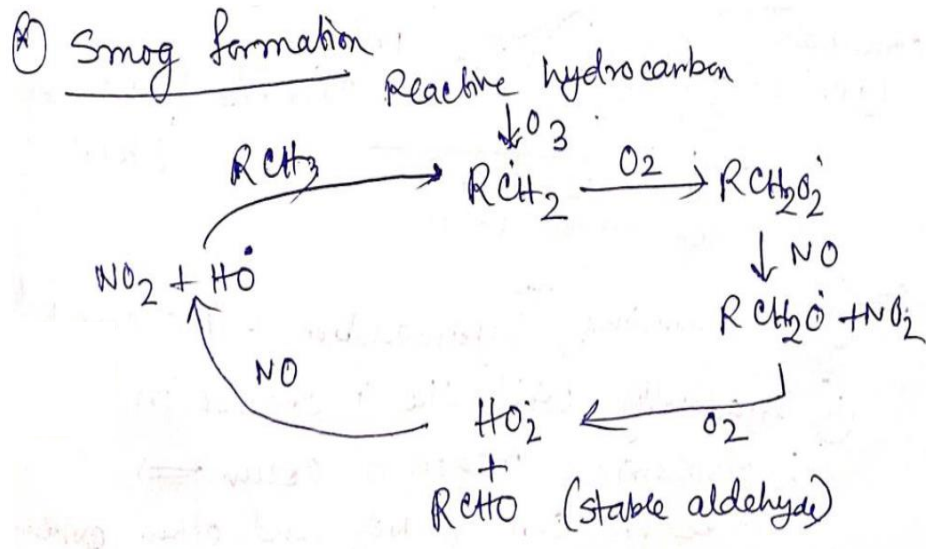 * Smog formation
Reactive hydrocarbon
↓ O3
RCH3
RĊH2 → O2 RCH2Ȯ2
↓ NO
NO2 + HȮ
RCH2Ȯ + NO2
NO
O2
HȮ2
+
RCHO (stable aldehyde)